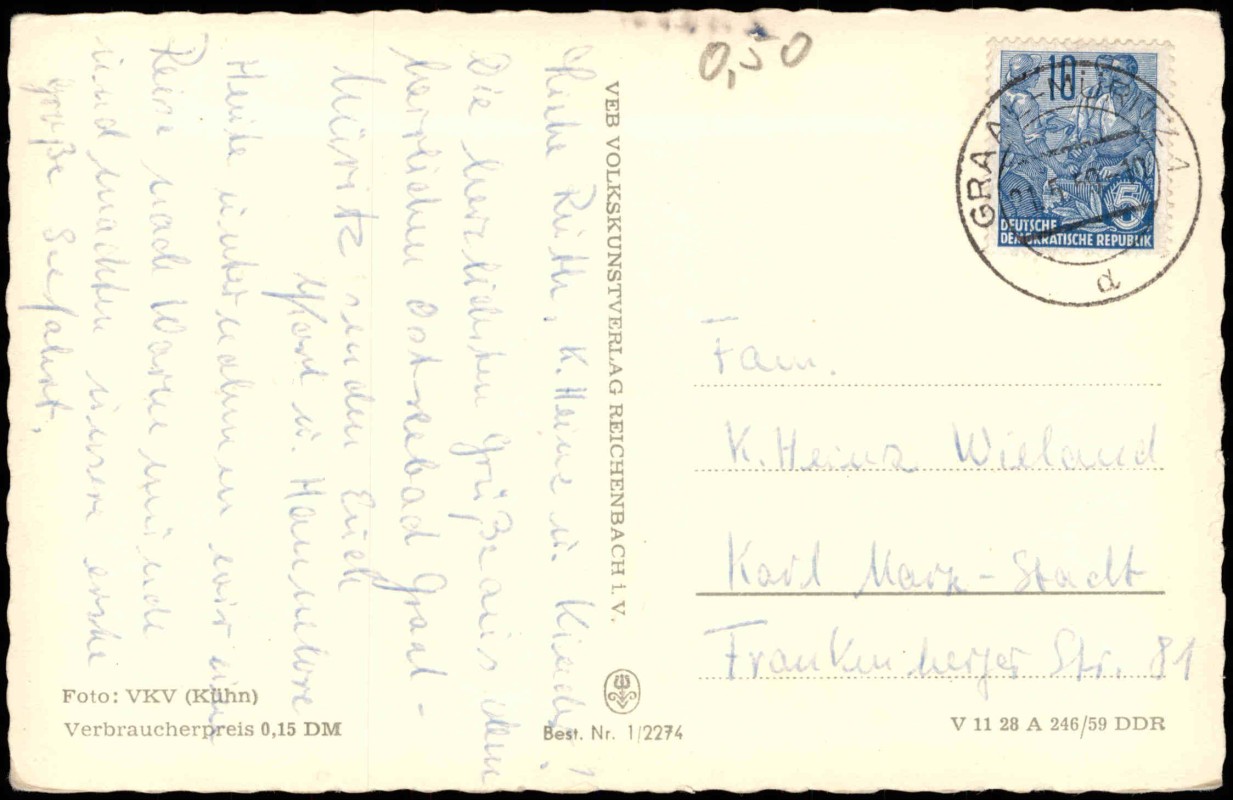 Liebe Ruth, K. Heinz u. Kinder!
Die herzlichsten Grüße aus dem
herrlichen Ostseebad Graal-
Müritz senden Euch
Horst u. Hannelore
Heute unternahmen wir eine
Reise nach Warnemünde
und machten unsere erste
große Seefahrt.
VEB VOLKSKUNSTVERLAG REICHENBACH i. V.
0,50
10
5
DEUTSCHE
DEMOKRATISCHE REPUBLIK
GRAAL-MÜRITZ
21.5.
d
Fam.
K. Heinz Wieland
Karl Marx-Stadt
Frankenberger Str. 81
Foto: VKV (Kühn)
Verbraucherpreis 0,15 DM
Best. Nr. 1/2274
V 11 28 A 246/59 DDR